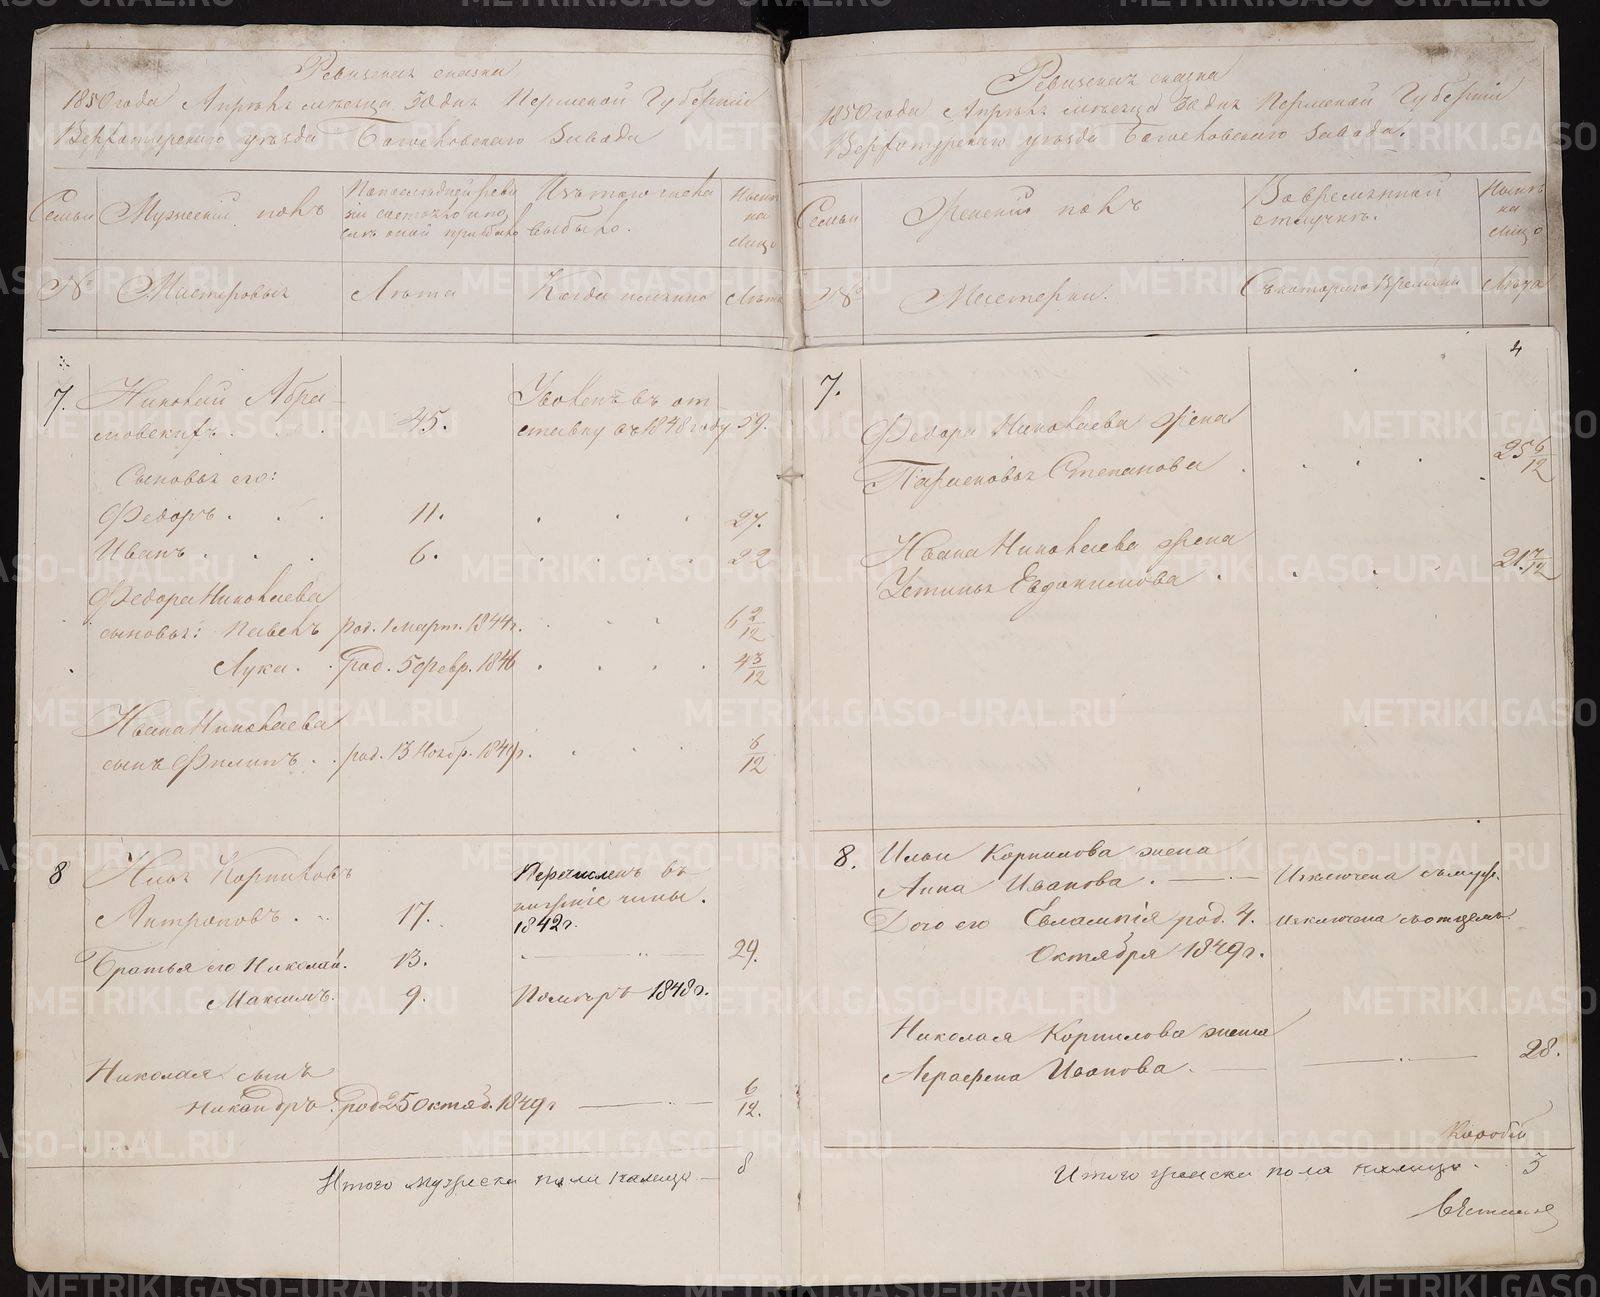 Ревизская сказка
1850 года Апрѣля мѣсяца 30 дня Пермской Губерніи
Верхотурскаго уѣзда Богословскаго Завода
Семьи
Мужескій полъ
По последней реви
зіи состояло или
послѣ оной прибыло
Изъ того числа
выбыло.
Нынѣ
на
лицо
№
Мастеровыхъ
Лѣта
Когда именно
Лѣта
7.
Николай Абра-
мовскихъ . . .
45.
Уволенъ въ от
ставку въ 1848 году
59.
Сыновья его:
Федоръ . . .
11.
27.
Иванъ . . .
6.
22
Федора Николаева
сыновья: Павелъ
род. 1 март. 1844г.
6 2/12
Лука . .
род. 5 Февр. 1846
4 3/12
Ивана Николаева
сынъ Филипъ . .
род. 13 Ноябр. 1849г.
6/12
8
Илья Корниловъ
Антроповъ . ..
17.
Перечисленъ въ
нижніе чины.
1842г.
Братья его Николай.
13.
29.
Максимъ.
9.
Помъръ 1848г.
Николая сынъ
Никандръ.
род 25 Октяб. 1849г
6/12.
Итого мужеска пола налицо
8
Ревизская сказка
1850 года Апрѣля мѣсяца 30 дня Пермской Губерніи
Верхотурскаго уѣзда Богословскаго Завода.
Семьи
Женскій полъ
Во временной
отлучкѣ.
Нынѣ
на
лицо
№
Мастерки.
Съ котораго Времени
Лѣта
4
7.
Федора Николаева жена
Парасковья Степанова .
25 6/12
Ивана Николаева жена
Устинья Евдокимова .
21 7/12
8.
Ильи Корнилова жена
Анна Иванова .
Изключена съ муж.
Дочь его Евлампія род. 4.
Октября 1849г.
изключена съ отцемъ.
Николая Корнилова жена
Аграфена Иванова.
28.
Итого женска пола налицо.
3
METRIKI.GASO-URAL.RU